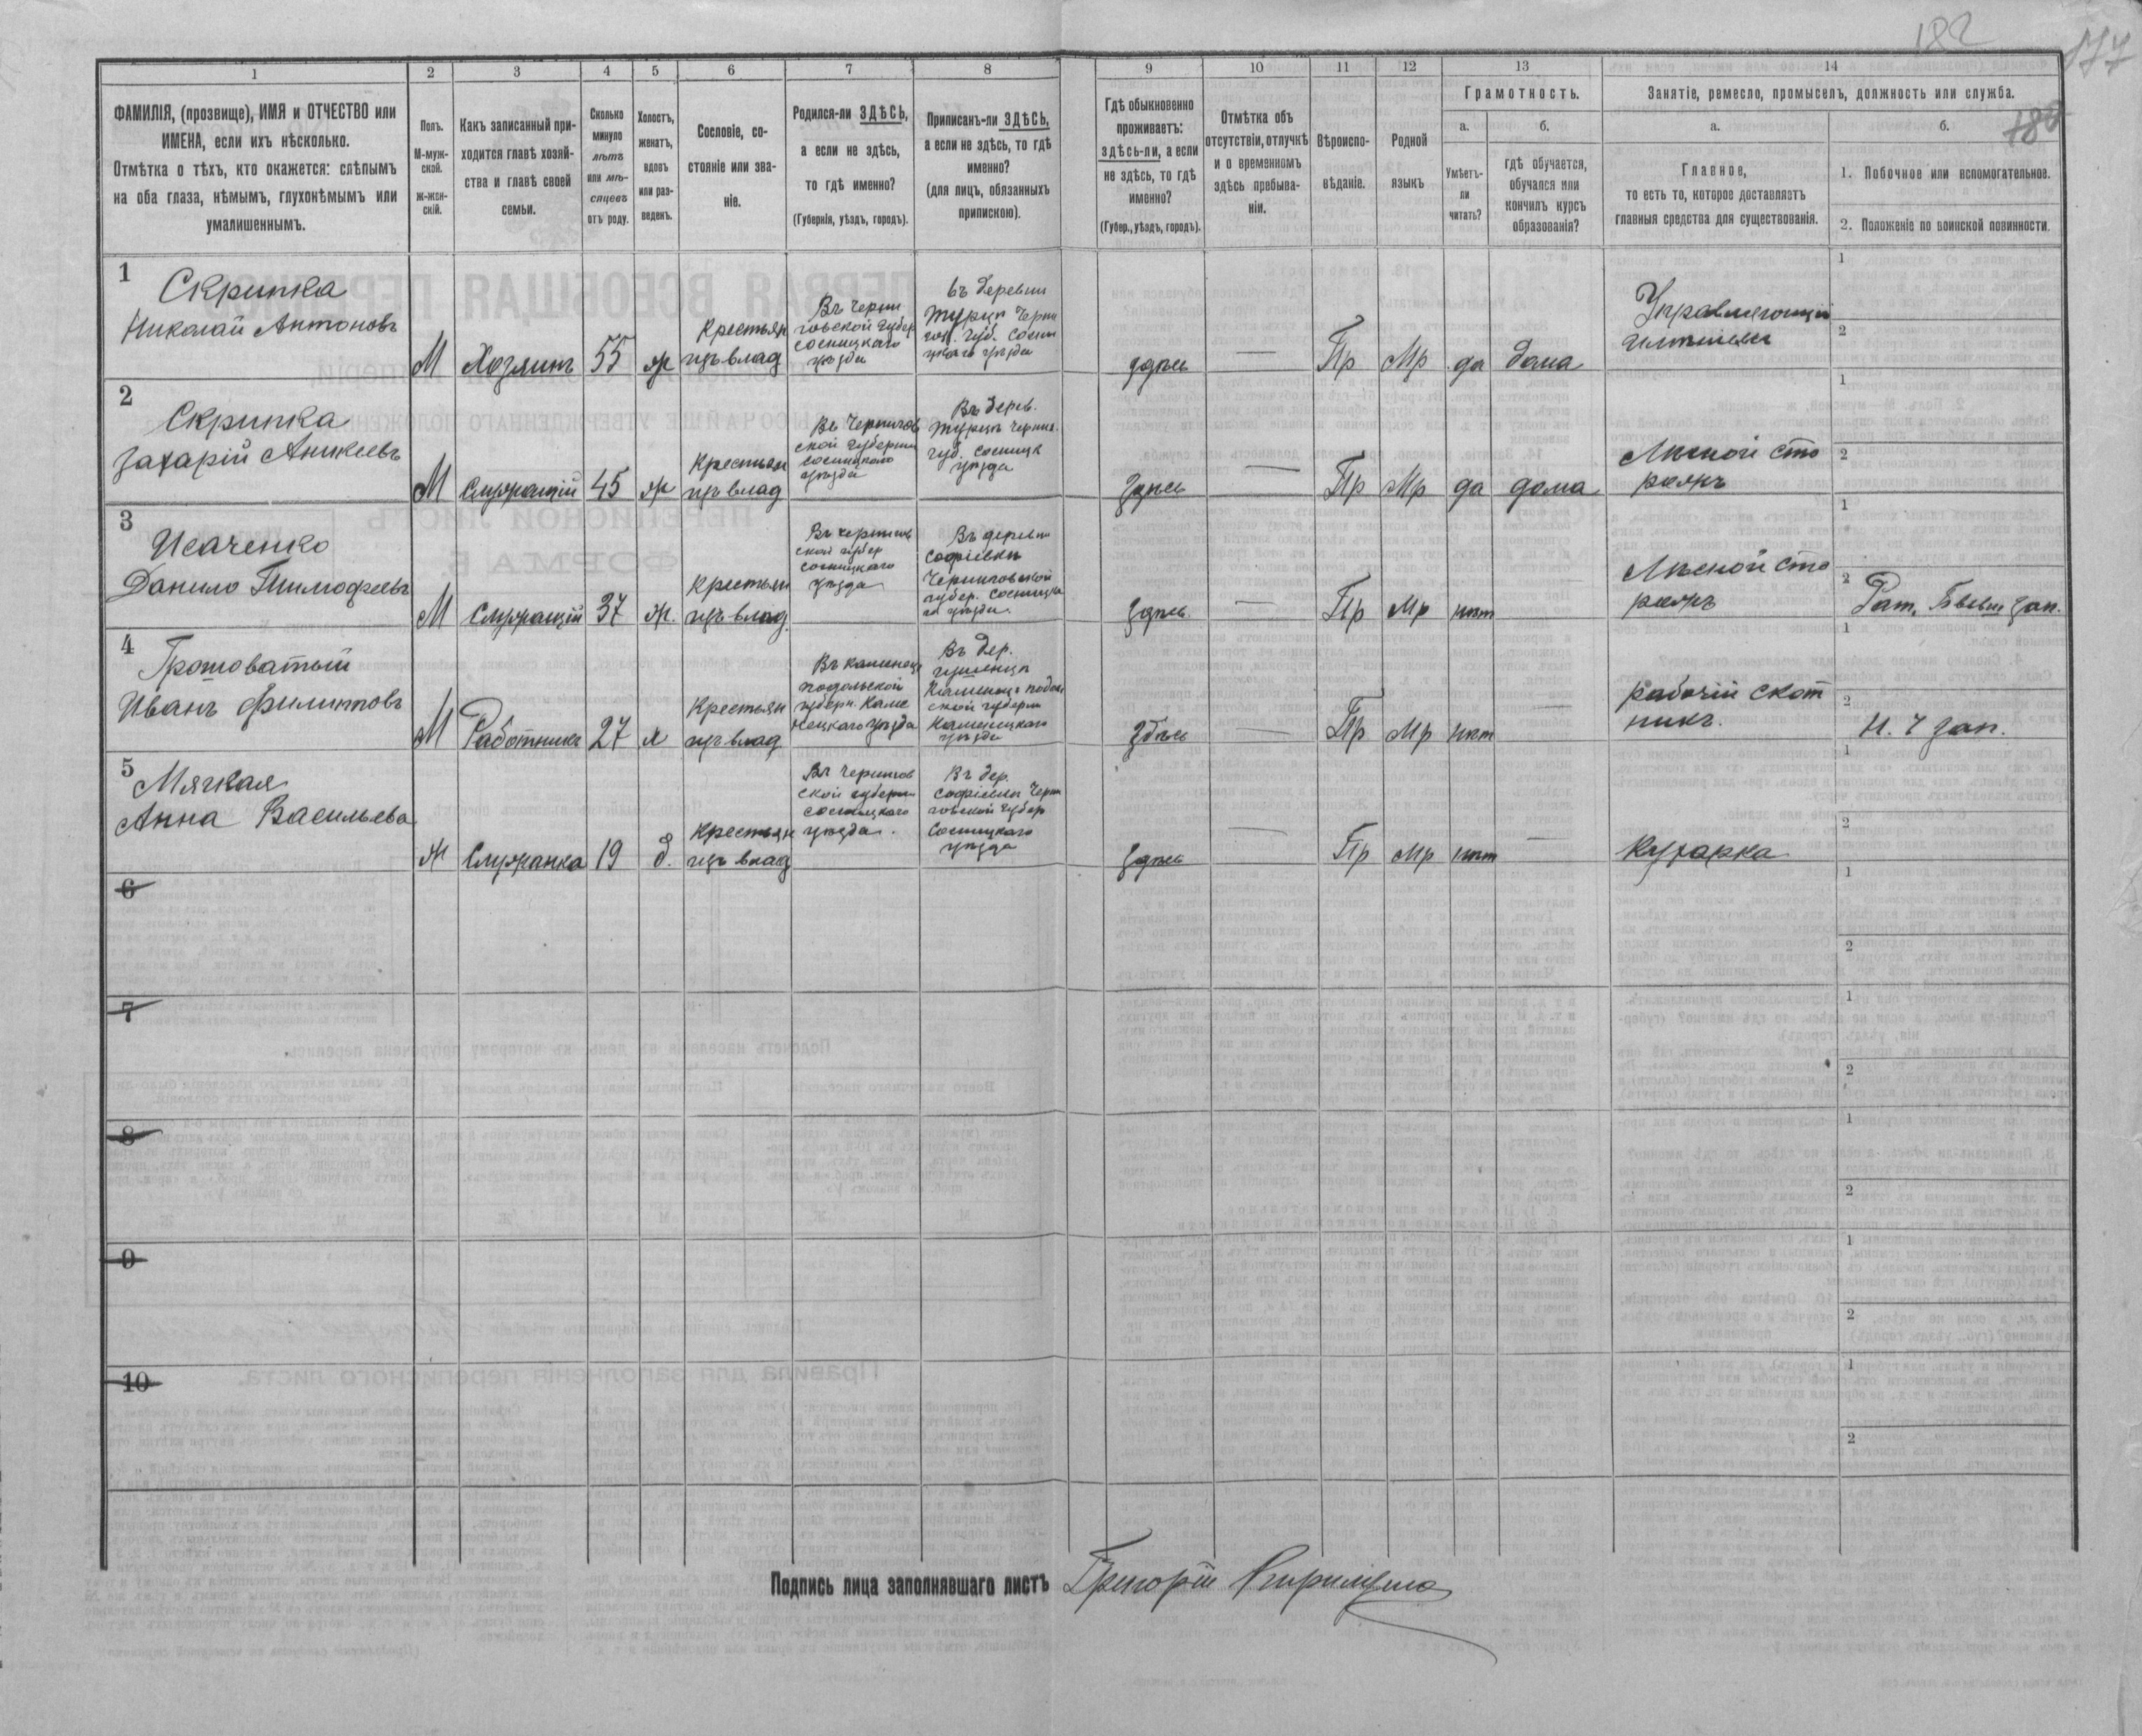 182
177
180
1
2
3
4
5
6
7
8
9
10
11
12
13
14
ФАМИЛІЯ, (прозвище), ИМЯ и ОТЧЕСТВО или
ИМЕНА, если ихъ нѣсколько.
Отмѣтка о тѣхъ, кто окажется: слѣпымъ
на оба глаза, нѣмымъ, глухонѣмымъ или
умалишеннымъ.
Полъ.
М-муж-
ской.
ж-жен-
скій.
Какъ записанный при-
ходится главѣ хозяй-
ства и главѣ своей
семьи.
Сколько
минуло
лѣтъ
или мѣ-
сяцевъ
отъ роду.
Холостъ,
женатъ,
вдовъ
или раз-
веденъ.
Сословіе, со-
стояніе или зва-
ніе.
Родился-ли ЗДѢСЬ,
а если не здѣсь,
то гдѣ именно?
(Губернія, уѣздъ, городъ).
Приписанъ-ли ЗДѢСЬ,
а если не здѣсь, то гдѣ
именно?
(для лицъ, обязанныхъ
припискою).
Гдѣ обыкновенно
проживаетъ:
здѣсь-ли, а если
не здѣсь, то гдѣ
именно?
(Губер., уѣздъ, городъ).
Отмѣтка объ
отсутствіи, отлучкѣ
и о временномъ
здѣсь пребыва-
ніи.
Вѣроиспо-
вѣданіе.
Родной
языкъ
Грамотность.
а.
Умѣетъ-
ли
читать?
б.
гдѣ обучается,
обучался или
кончилъ курсъ
образованія?
Занятіе, ремесло, промыселъ, должность или служба.
а.
Главное,
то есть то, которое доставляетъ
главныя средства для существованія.
б.
1. Побочное или вспомогательное.
2. Положеніе по воинской повинности.
1
Скрипка
Николай Антоновъ
М
Хозяинъ
55
ж
Крестьян
цъ влад
Въ Черни
говской губер
Сосницкаго
уѣзда
Въ деревни
Турцѣ Черни
гов. губ. Сосни
цкаго уѣзда
здѣсь
—
Пр
Мр
да
дома
Управляющій
имѣнiем
1
2
2
Скрипка
Захарій Аникеевъ
М
Служащій
45
ж
Крестьян
цъ влад
Въ Чернигов
ской губернии
Сосницкаго
уѣзда
Въ дерев.
Турцѣ Черниг.
губ. Сосницк
уѣзда
Здѣсь
—
Пр
Мр
да
дома
Лѣсной сто
рожъ
1
2
3
Исаченко
Данило Тимофеевъ
М
Служащій
37
ж.
Крестьян
цъ влад
Въ Чернигов
ской губер
Сосницкаго
уѣзда
Въ деревни
Софіевкѣ
Черниговской
губер. Сосницка
го уѣзда.
Здѣсь
—
Пр
Мр
нѣт
—
Лѣсной сто
рожъ
1
2
Рат.
зап.
4
Иванъ Филиповъ
М
Работникъ
27
х
Крестьян
цъ влад
Въ Каменец
подольской
губерн. Каме
нецкаго уѣзда
Въ дер.
Каменец подоль
ской губерн
Каменецкаго
уѣзда
Здѣсь
—
Пр
Мр
нѣт
—
рабочій скот
никъ.
1
2
Н. Ч зап.
5
Мягкая
Анна Васильева
ж
Служанка
19
д.
Крестьян
цъ влад
Въ Чернигов
ской губерн
Сосницкаго
уѣзда.
Въ дер.
Софіевкѣ Черни
говской губер
Сосницкаго
уѣзда
Здѣсь
—
Пр
Мр
нѣт
—
Кухарка
1
2
6
1
2
7
1
2
8
1
2
9
1
2
10
1
2
Подпись лица заполнявшаго листъ Григорій